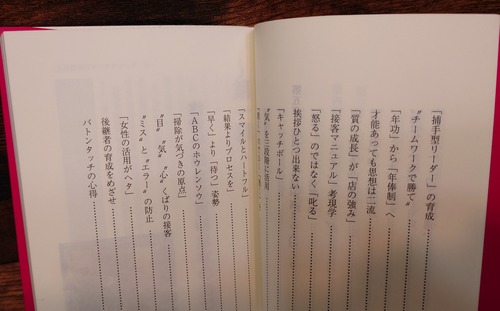 「捕手型リーダー」の育成
〝チームワークで勝て〟
「年功」から「年俸制」へ
才能あっても思想は二流
「質の成長」が「店の強み」
「接客マニュアル」考現学
「怒る」のではなく「叱る」
挨拶ひとつ出来ない
「キャッチボール」
〝気〟を三段階に活用
「スマイルとハートフル」
「結果よりプロセスを」
「早く」より「待つ」姿勢
「ABCのホウレンソウ」
「掃除が気づきの原点」
〝目〟〝気〟〝心〟くばりの接客
〝ミス〟と〝エラー〟の防止
「女性の活用がヘタ」
後継者の育成をめざせ
バトンタッチの心得